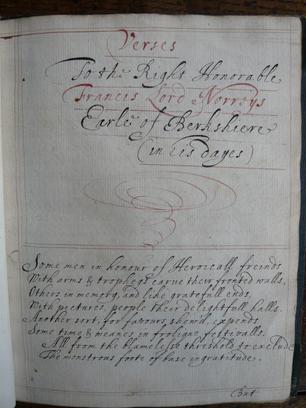 Verses
To the Right Honorable
Francis Lord Norreys
Earle of Berkshiere
(in his dayes)
Some men in honour of Heroicall freinds
With arms & trophees carve their fronted walls.
Others in memory, and like gratefull ends,
With pictures, people their delightfull halls.
Another sort, for favours shew'd, expends
Some time & meanes, in
All from the blameless threshold to exclude
The monstrous foote of base ingratitude.
Cont